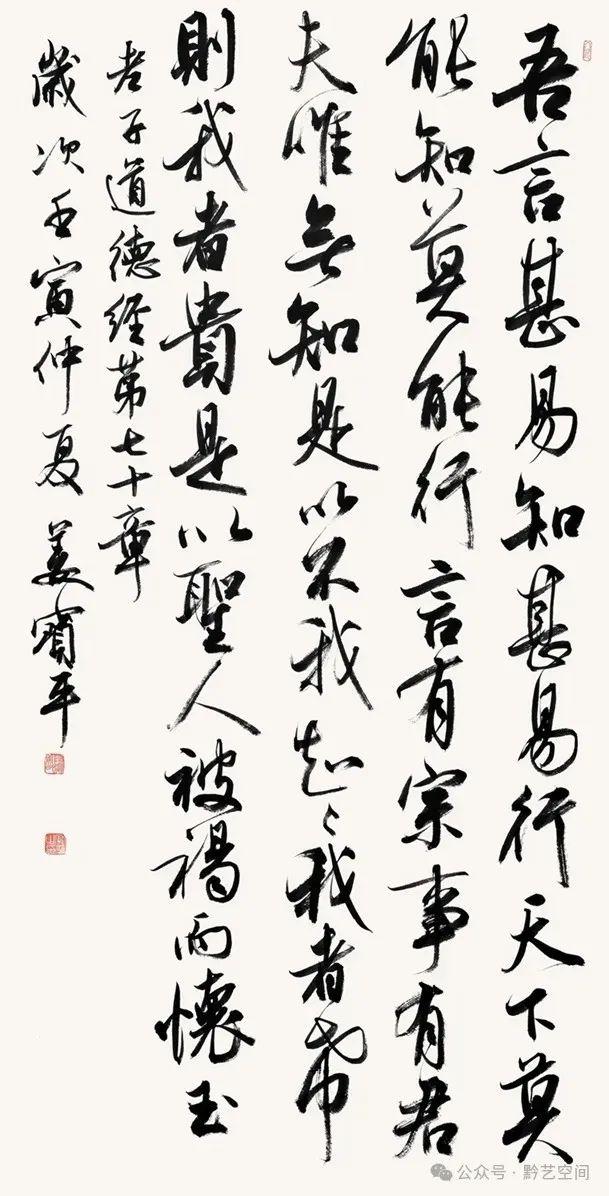 吾言甚易知甚易行天下莫
能知莫能行言有宗事有君
夫唯無知是以不我知〻我者希
則我者貴是以聖人被褐而懷玉
老子道德經第七十章
歲次壬寅仲夏 姜寶平
公众号·黔艺空间